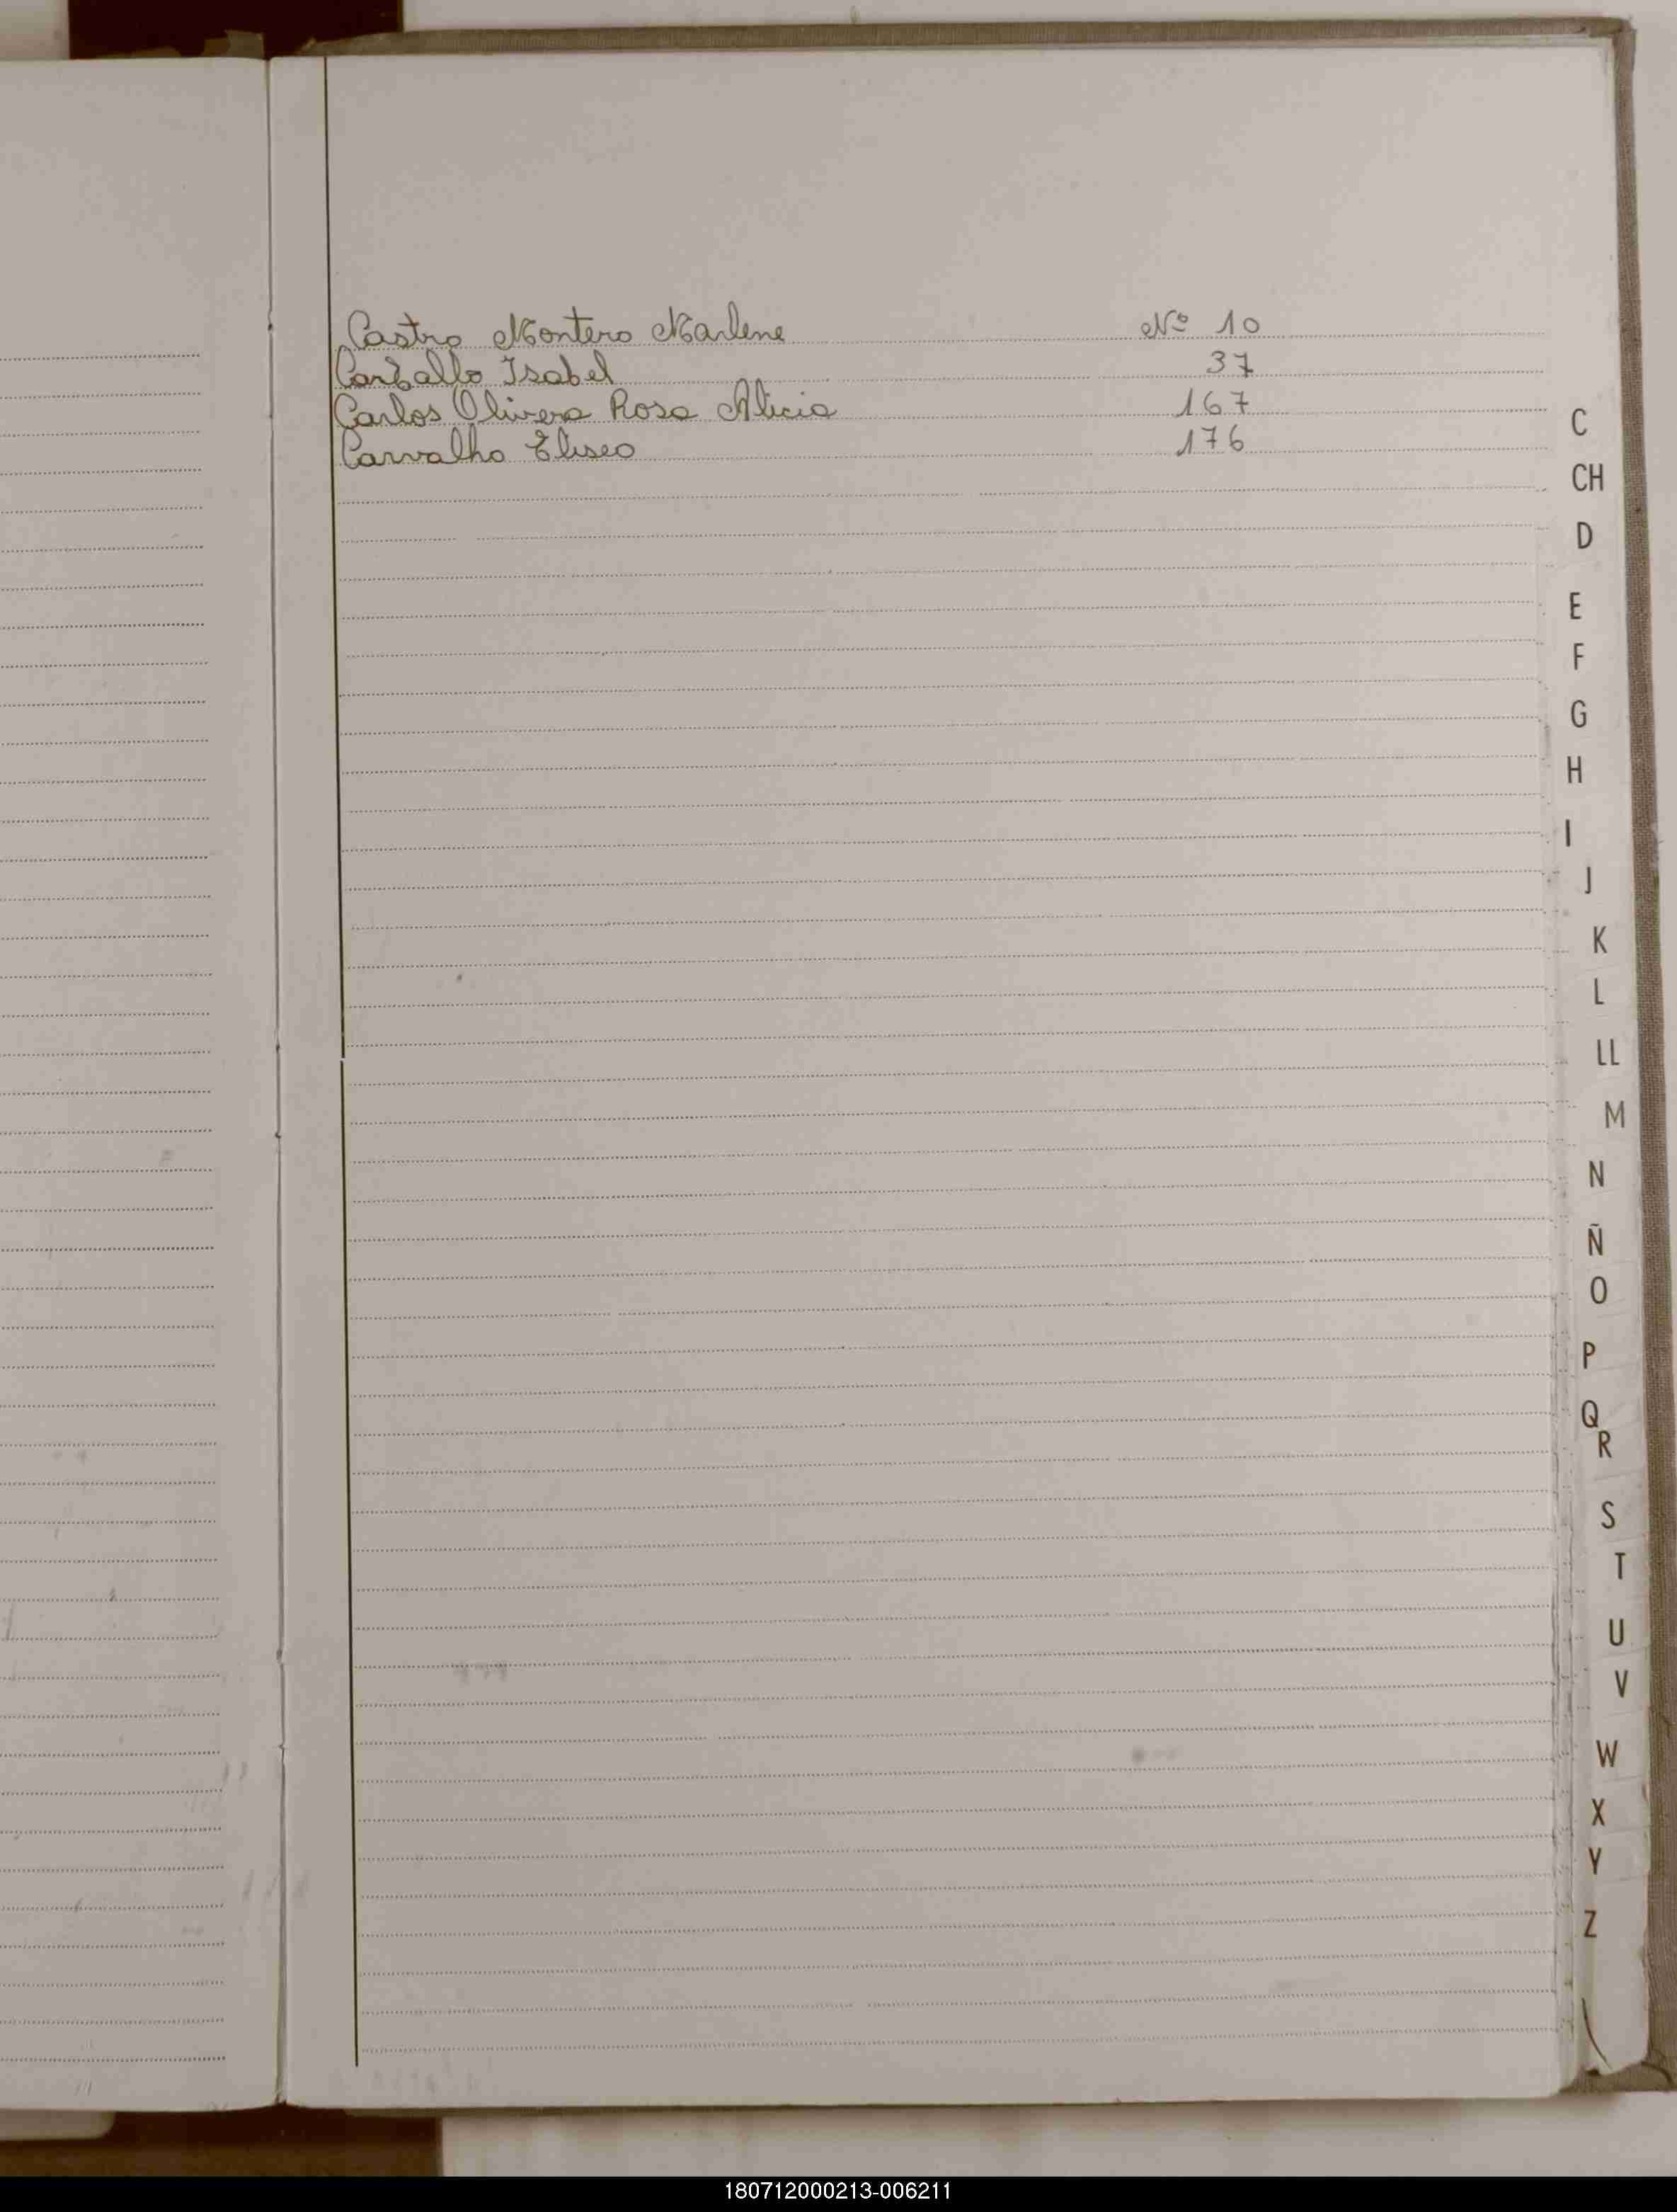 Castro Montero Marlene Nº 10
Carballo Isabel 37
Carlos Olivera Rosa Alicia 167
Carvalho Eliseo 176
C
CH
D
E
F
G
H
I
J
K
L
LL
M
N
Ñ
O
P
Q
R
S
T
U
V
W
X
Y
Z
180712000213-006211